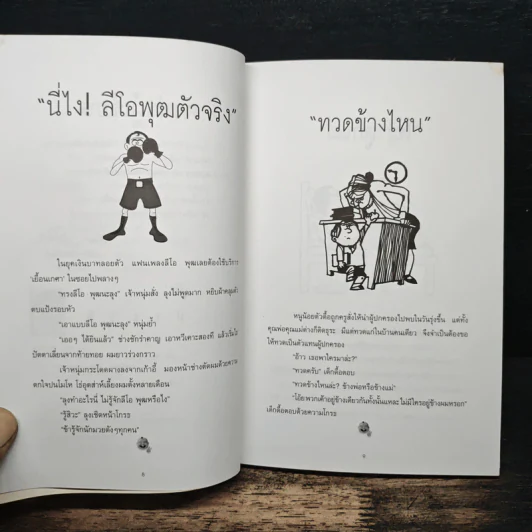 "นี่ไง! ลีโอพุฒตัวจริง"
ในยุคเงินบาทลอยตัว แฟนเพลงลีโอ พุฒเลยต้องใช้บริการ
"เยื้อนเกศา" ในซอยไปพลางๆ
"ทรงลีโอ พุฒนะลุง" เจ้าหนุ่มสั่ง ลุงไม่พูดมาก หยิบผ้าคลุมตัว
ตบแป้งรอบหัว
"เอาแบบลีโอ พุฒนะลุง" หนุ่มย้ำ
"เออๆ ได้ยินแล้ว" ช่างชักรำคาญ เอาหวีเคาะสองที แล้วเริ่มไถ
ปัตตาเลี่ยนจากท้ายทอย ผมยาวร่วงกราว
เจ้าหนุ่มกระโดดผางลงจากเก้าอี้ มองหน้าช่างตัดผมด้วยความ
ตกใจปนโมโห ไอ้อุตส่าห์เลี้ยงผมตั้งหลายเดือน
"ลุงทำอะไรนี่ ไม่รู้จักลีโอ พุฒหรือไง"
"รู้สิวะ" ลุงเชิดหน้าโกรธ
"ข้ารู้จักนักมวยดังๆทุกคน"
8
"ทวดข้างไหน"
หนูน้อยตัวดื้อถูกครูสั่งให้นำผู้ปกครองไปพบในวันรุ่งขึ้น แต่ทั้ง
คุณพ่อคุณแม่ต่างก็ติดธุระ มีแต่ทวดแก่ในบ้านคนเดียว จึงจำเป็นต้องขอ
ให้ทวดเป็นตัวแทนผู้ปกครอง
"อ้าว เธอพาใครมาล่ะ?"
"ทวดครับ" เด็กดื้อตอบ
"ทวดข้างไหนล่ะ? ข้างพ่อหรือข้างแม่"
"โอ๊ยพวกเค้าอยู่ข้างเดียวกันทั้งนั้นแหละ ไม่มีใครอยู่ข้างผมหรอก"
เด็กดื้อตอบด้วยความโกรธ
9